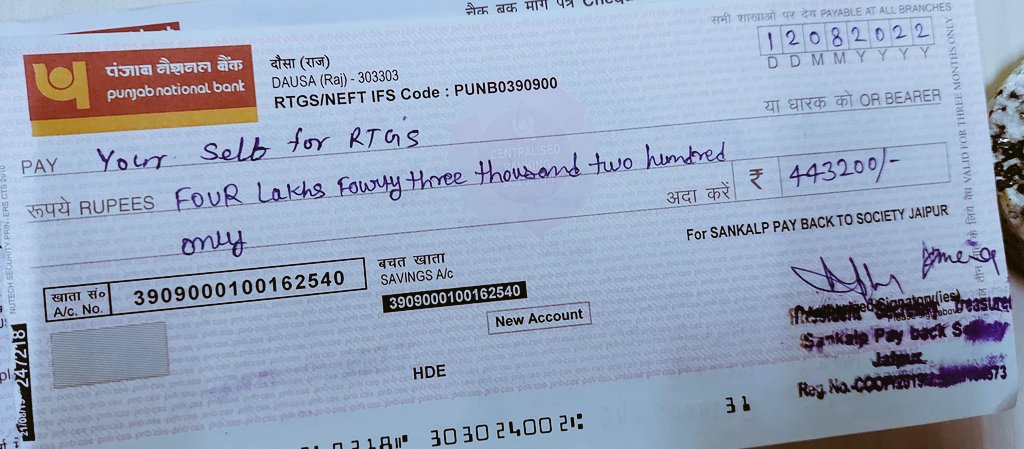 चैक बुक मांग पत्र
सभी शाखाओं पर देय PAYABLE AT ALL BRANCHES
12082022
D D M M Y Y Y Y
पंजाब नैशनल बैंक
punjab national bank
दौसा (राज)
DAUSA (Raj) - 303303
RTGS/NEFT IFS Code : PUNB0390900
या धारक को OR BEARER
PAY Your Self for RTGS
CENTRALISED
रूपये RUPEES FOUR Lakhs Fourty three thousand two hundred
only
अदा करें ₹ 443200/-
For SANKALP PAY BACK TO SOCIETY JAIPUR
खाता सं० A/c. No. 3909000100162540
बचत खाता
SAVINGS A/c
3909000100162540
New Account
HDE
Signatory(ies)
Treasurer
Sankalp Pay back Society
Jaipur
Reg No.
VALID FOR THREE MONTHS ONLY
247218
30302400 2
31